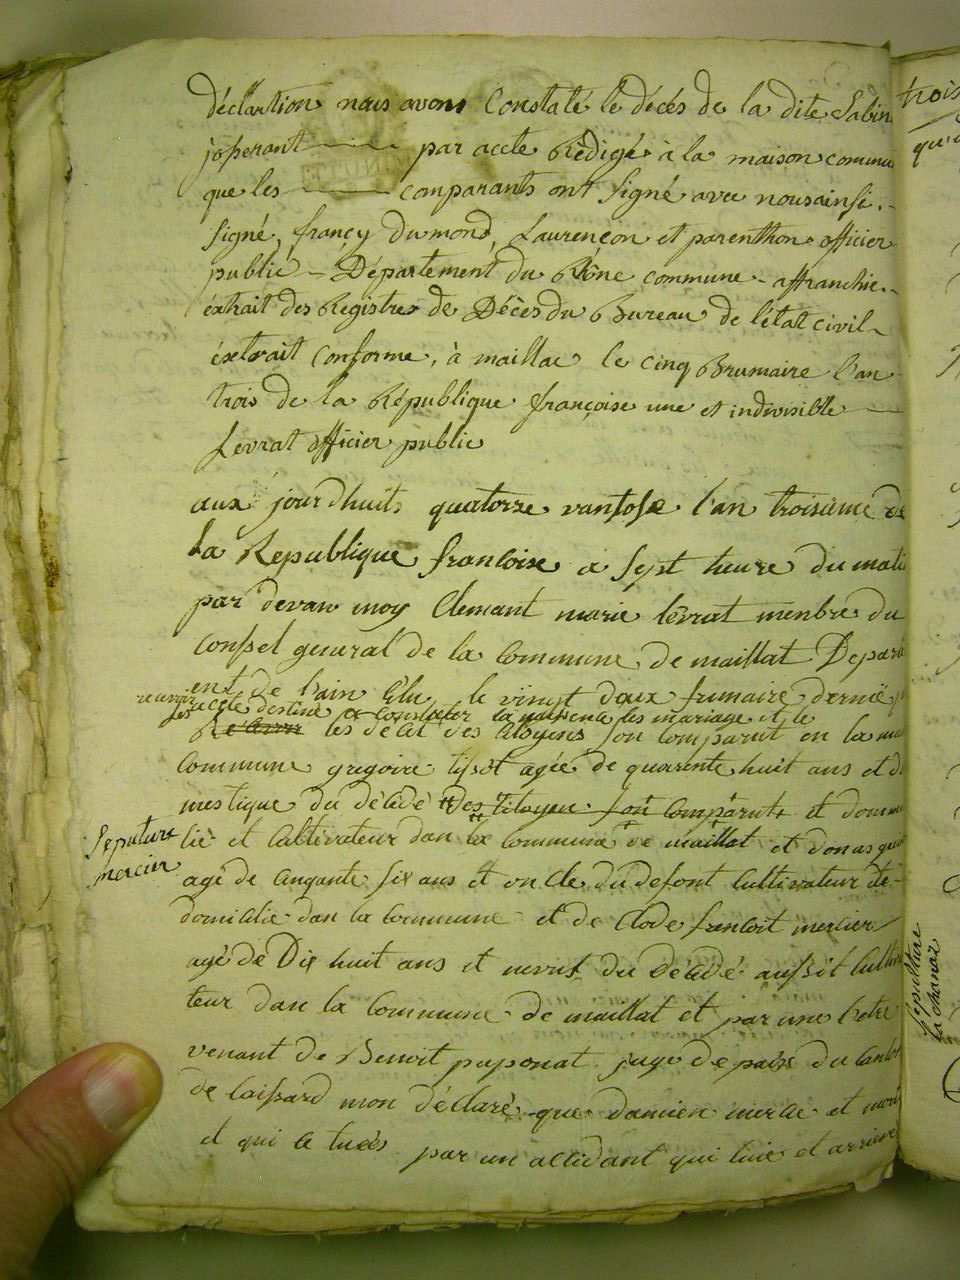 déclartion nous avons Constaté le décés de la dite Sabin
josperant par acte Rédigé à la maison commu
que les comparants ont signé avec nous ainsi.-
signé, françy Dumond, Laurençon et parenthon officier
public - Département du Rône commune - affranchie.-
éxtrait des Registres de Décès du Bureau de l'état civil
éxtrait conforme, à maillac le cinq Brumaire l'an
trois de la République françoise une et indivisible
Levrat officier public
aux jourdhuit quatorze vantose l'an troisieme de
La Republique francoise a sept heure du mati
par devan moy Clemant marie levrat menbre du
Conssel general de la Commune de maillat Depart
ent de l'ain Elu le vingt deux frumaire dernié
recuvoir
les acte destiné a constater la naissence les mariage et le
les décet des Citoyens son comparut en la
Commune gregoire tissot agée de quarente huit ans et d
mestique du décédé Des Citoyen son comparut et domi
lié et Cultivateur dan la Commune de maillat et donas
Seputure
mercier
agé de cinquante six ans et oncle du defont Cultivateur de-
domicilié dan la Commune et de Clode francoit mercier
agé de Dix huit ans et nevut du décédé aussit Culti
teur dan la Commune de maillat et par une letre
venant de Benoit puponat juge de paix du Canto
de laissard mon déclaré que damien mercie et mort
et qui a tués par un accidant qui luie et arrive
trois
qu'
Sepulture
la chanaz